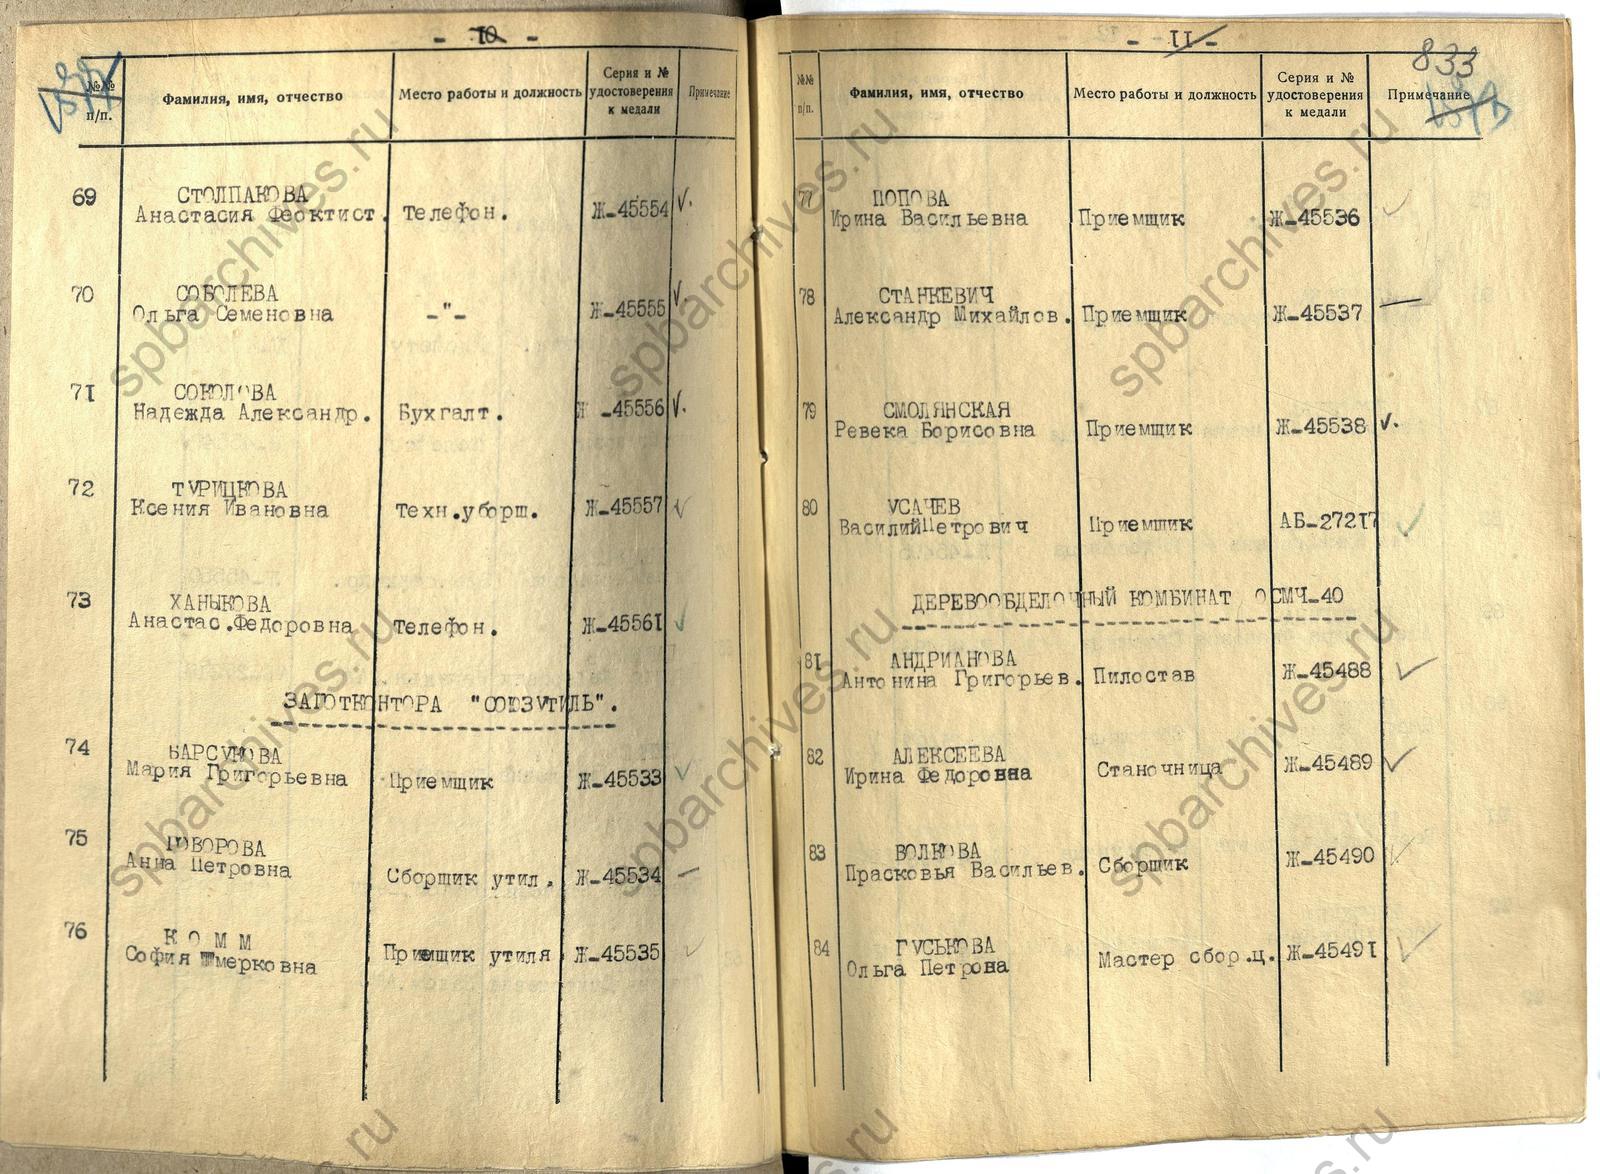 - 10 -
№№ п/п.
Фамилия, имя, отчество
Место работы и должность
Серия и № удостоверения к медали
Примечание
69 СТОЛПАКОВА
Анастасия Феоктист. Телефон. Ж-45554
70 СОБОЛЕВА
Ольга Семеновна -"- Ж-45555
71 СОКОЛОВА
Надежда Александр. Бухгалт. Ж-45556
72 ТУРИЦКОВА
Ксения Ивановна Техн.уборщ. Ж-45557
73 ХАНЫКОВА
Анастас.Федоровна Телефон. Ж-45561
ЗАГОТКОНТОРА "СОЮЗУТИЛЬ".
74 БАРСУКОВА
Мария Григорьевна Приемщик Ж-45533
75 ГОВОРОВА
Анна Петровна Сборщик утил. Ж-45534
76 К О М М
София Приемщик утиля Ж-45535
- 11 -
833
№№ п/п.
Фамилия, имя, отчество
Место работы и должность
Серия и № удостоверения к медали
Примечание
77 ПОПОВА
Ирина Васильевна Приемщик Ж-45536
78 СТАНКЕВИЧ
Александр Михайлов. Приемщик Ж-45537
79 СМОЛЯНСКАЯ
Ревека Борисовна Приемщик Ж-45538
80 УСАЧЕВ
ВасилийПетрович Приемщик АБ-27217
ДЕРЕВООБДЕЛОЧНЫЙ КОМБИНАТ ОСМЧ-40
81 АНДРИАНОВА
Антонина Григорьев. Пилостав Ж-45488
82 АЛЕКСЕЕВА
Ирина Федоровна Станочница Ж-45489
83 ВОЛКОВА
Прасковья Васильев. Сборщик Ж-45490
84 ГУСЬКОВА
Ольга Петрона Мастер сбор.ц. Ж-45491
spbarchives.ru
spbarchives.ru
spbarchives.ru
spbarchives.ru
spbarchives.ru
spbarchives.ru